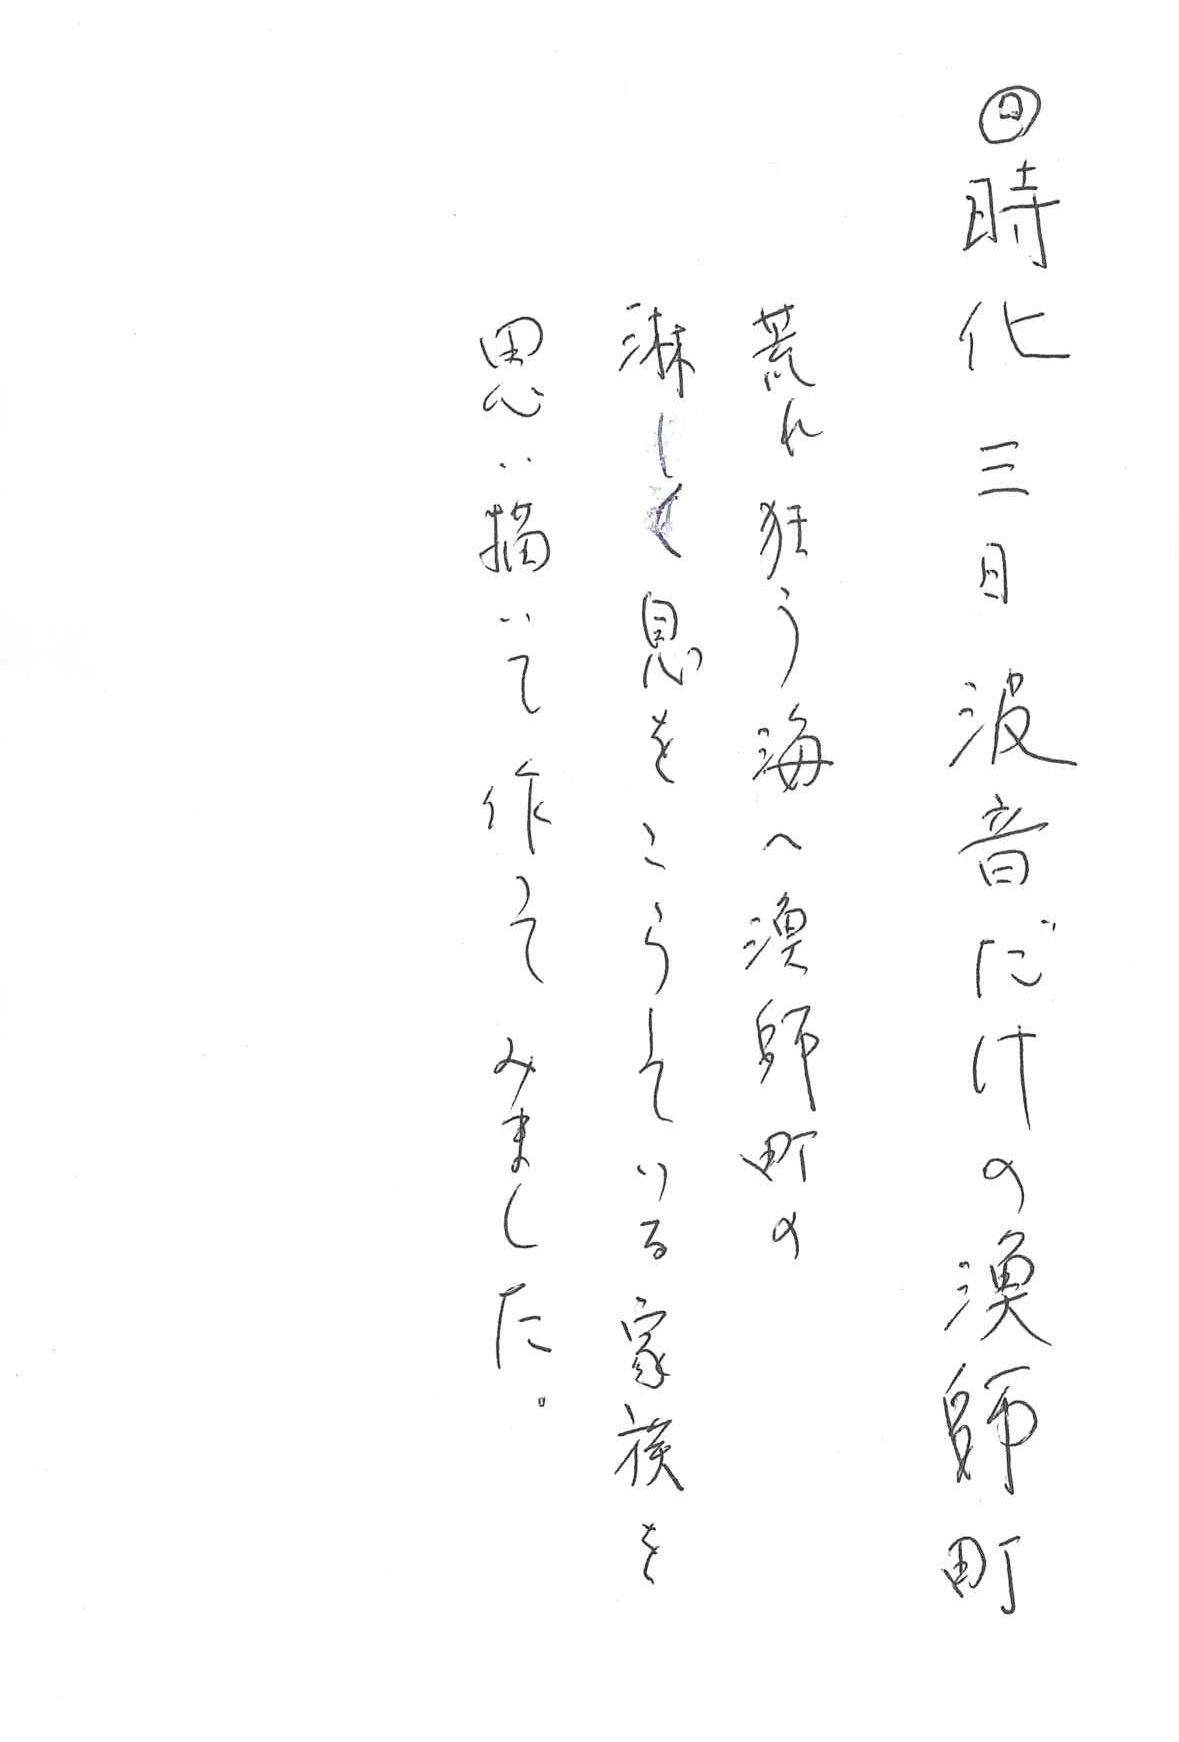 ◎時化三日波音だけの漁師町
荒れ狂う海へ漁師町の
淋しく息をこらしている家族を
思い描いて作ってみました。